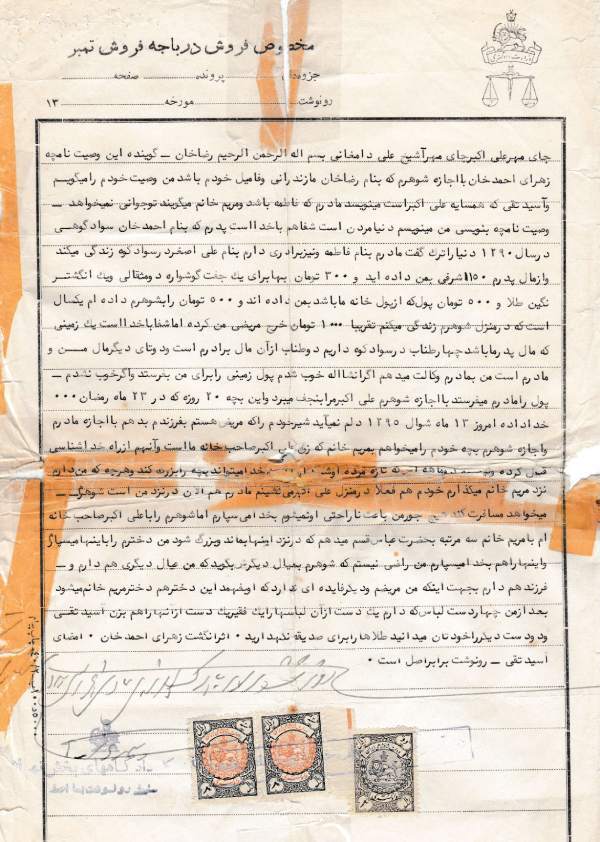 مخصوص فروش در باجه فروش تمبر
جزوه‌دان پرونده صفحه
رونوشت مورخه ۱۳
جای مهر علی اکبر جای مهر آشیخ علی دامغانی بسم اله الرحمن الرحیم رضاخان ــ گوینده این وصیت نامچه
زهرای احمدخان با اجازه شوهرم که بنام رضاخان مازندرانی وفامیل خودم باشد من وصیت خودم را میگویم
وآسید تقی که همسایه علی اکبر است مینویسد مادرم که فاطمه باشد ومریم خانم میگویند توجوانی نمیخواهد ــ
وصیت نامچه بنویسی من مینویسم دنیا مردن است شفاهم باخدا است پدرم که بنام احمدخان سوادکوهی
درسال ۱۲۹۰ دنیا را ترک گفت مادرم بنام فاطمه ونیز برادری دارم بنام علی اصغر در سوادکوه زندگی میکند
واز مال پدرم ۱۱۵۰ اشرفی بمن داده اید و ۳۰۰ تومان بهابرای یک جفت گوشواره دومثقالی ویک انگشتر
نگین طلا و ۵۰۰ تومان پول که از پول خانه ما باشد بمن داده اند و ۵۰۰ تومان را بشوهرم داده ام یکسال
است که در منزل شوهرم زندگی میکنم تقریبا ۱۰۰۰ تومان خرج مریضی من کرده اما شفا باخدا است یک زمینی
که مال پدر ما باشد چهار طناب در سوادکوه داریم دوطناب از آن مال برادرم است ودوتای دیگر مال مــن و
مادرم است من بمادرم وکالت میدهم اگر انشااله خوب شدم پول زمینی را برای من بفرستد واگر خوب نشدم ــ
پول را مادرم میفرستد با اجازه شوهرم علی اکبر مرا بنجف میبرد واین بچه ۲۰ روزه که در ۲۳ ماه رمضان ۰۰۰
خدا داده امروز ۱۳ ماه شوال ۱۲۹۵ دلم نمیآید شیر خودم را که مریض هستم بفرزندم بدهم با اجازه مادرم
واجازه شوهرم بچه خودم را میخواهم بمریم خانم که زن علی اکبر صاحب خانه ما است وآنهم از راه خداشناسی
قبول کرده تازه مرده خدا میتواند بچه را بزرگ کند وهرچه که من دارم
نزد مریم خانم میگذارم خودم هم فعلا در منزل علی اکبر می نشینم مادرم هم الان در نزد من است شوهرم ــ
میخواهد مسافرت کند هیچ جور من باعث ناراحتی او نمیشوم بخدا می سپارم اما شوهرم را با علی اکبر صاحب خانه
ام با مریم خانم سه مرتبه بحضرت عباس قسم میدهم که در نزد اونها بماند وبزرگ شود من دخترم را باینها میسپارم
واینها را هم بخدا میسپارم من راضی نیستم که شوهرم بعیال دیگرش بگوید که من عیال دیگری هم دارم و ــ
فرزند هم دارم بجهت اینکه من مریضم ودیگر فایده ای ندارد که اوبفهمد این دختر هم دختر مریم خانم میشود
بعد از من چهار دست لباس که دارم یک دست از آن لباسها را یک فقیر یک دست از آنها را هم بزن آسید تقی
ودو دست دیگر را خودتان میدانید طلاها را برای صدیقه نگهدارید ۰ اثر انگشت زهرای احمدخان ۰ امضای
آسید تقی ــ رونوشت برابر اصل است ۰